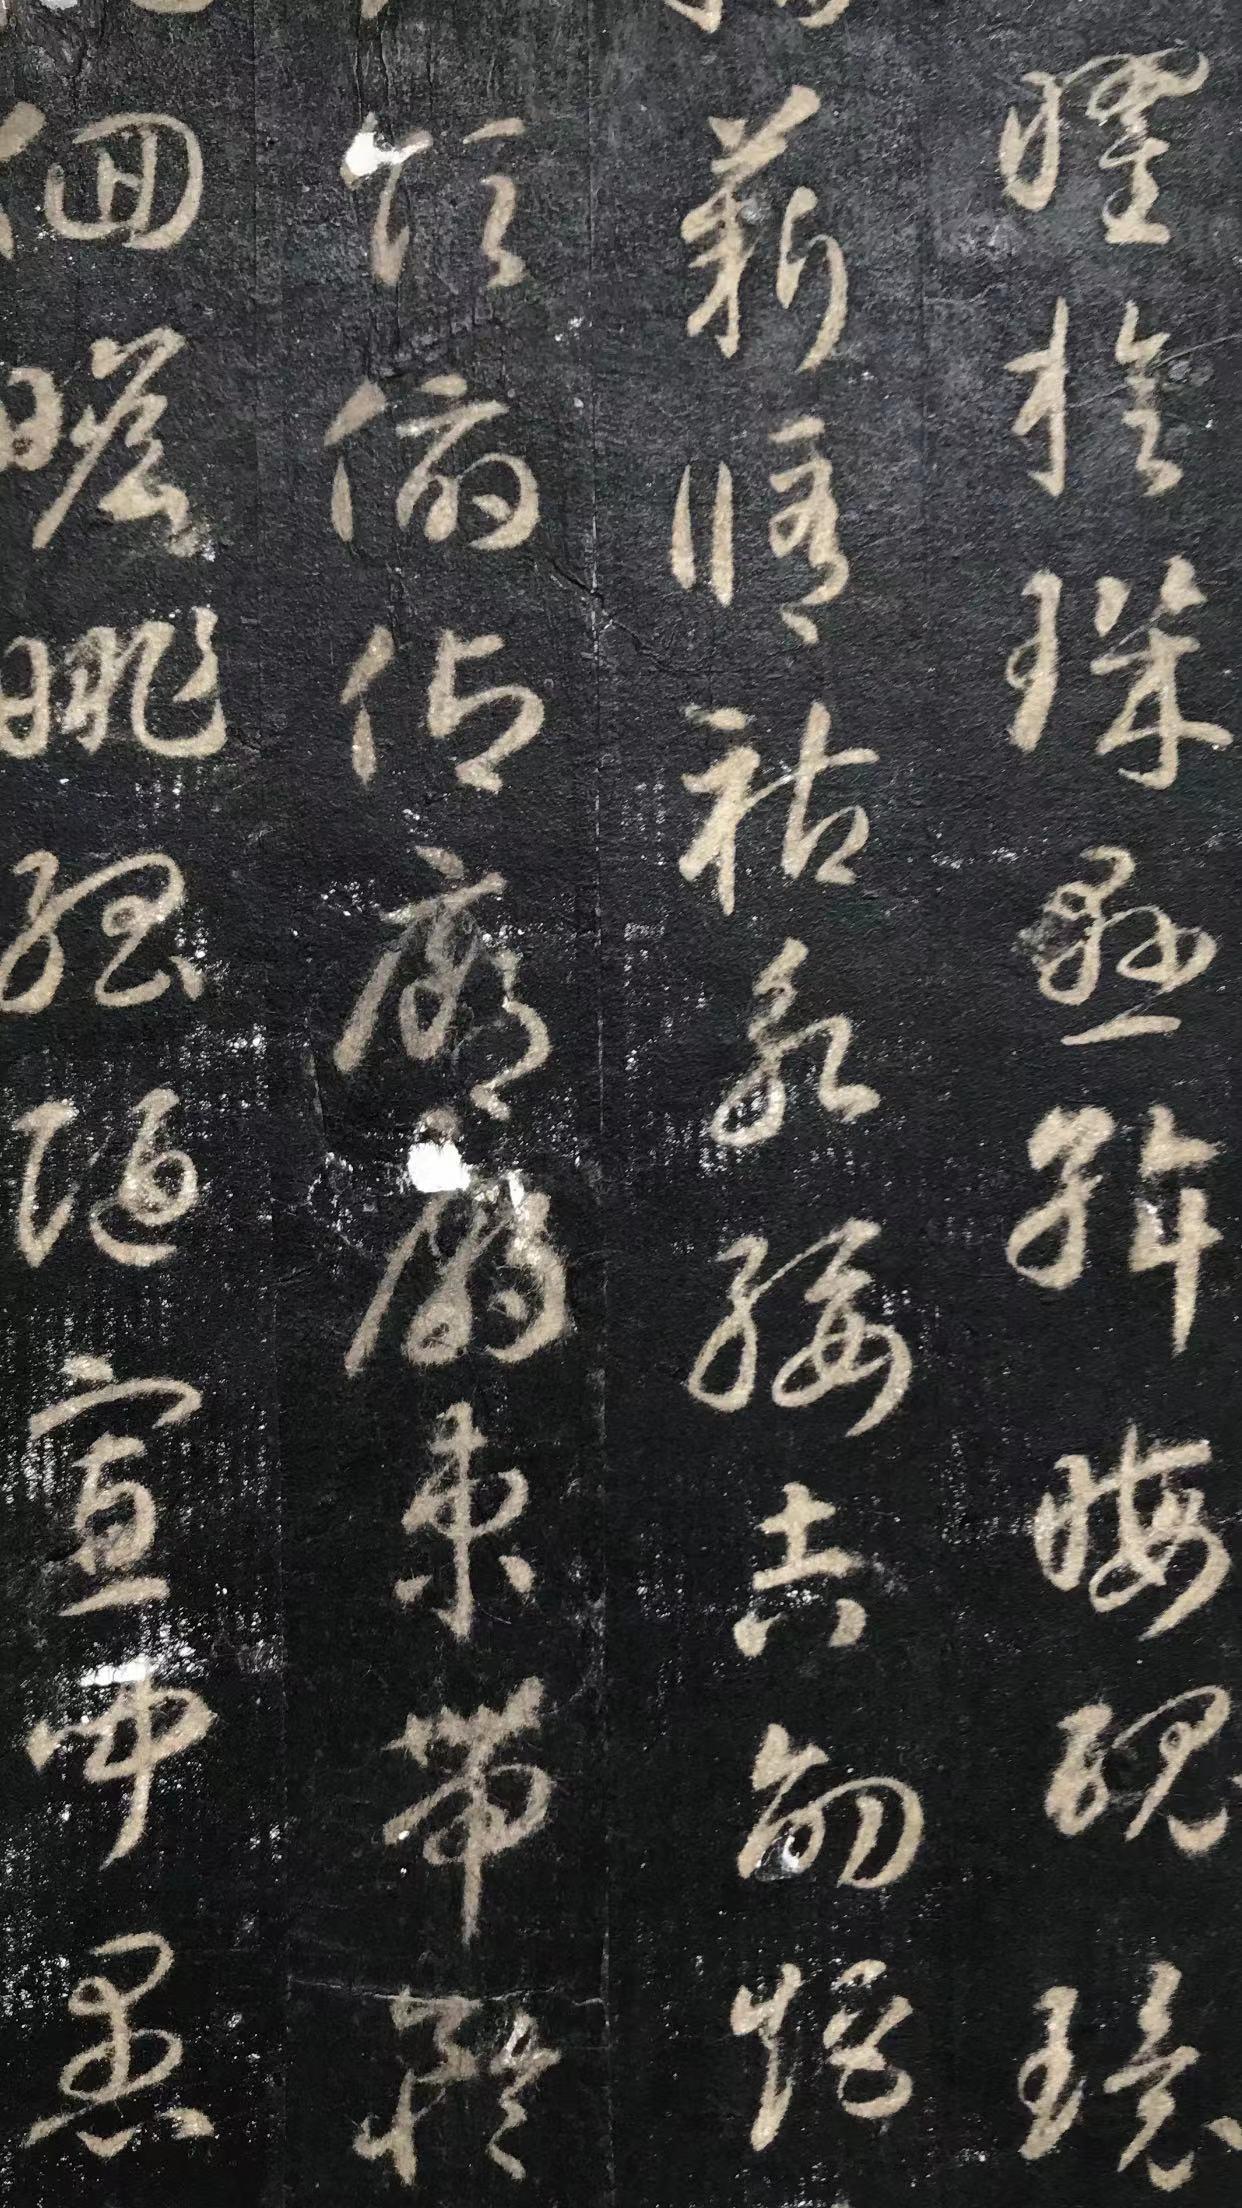 曜旋璣懸斡晦魄環
薪脩祜永綏吉劭矩
領俯仰廊廟束帶矜
徊瞻眺孤陋寡聞愚